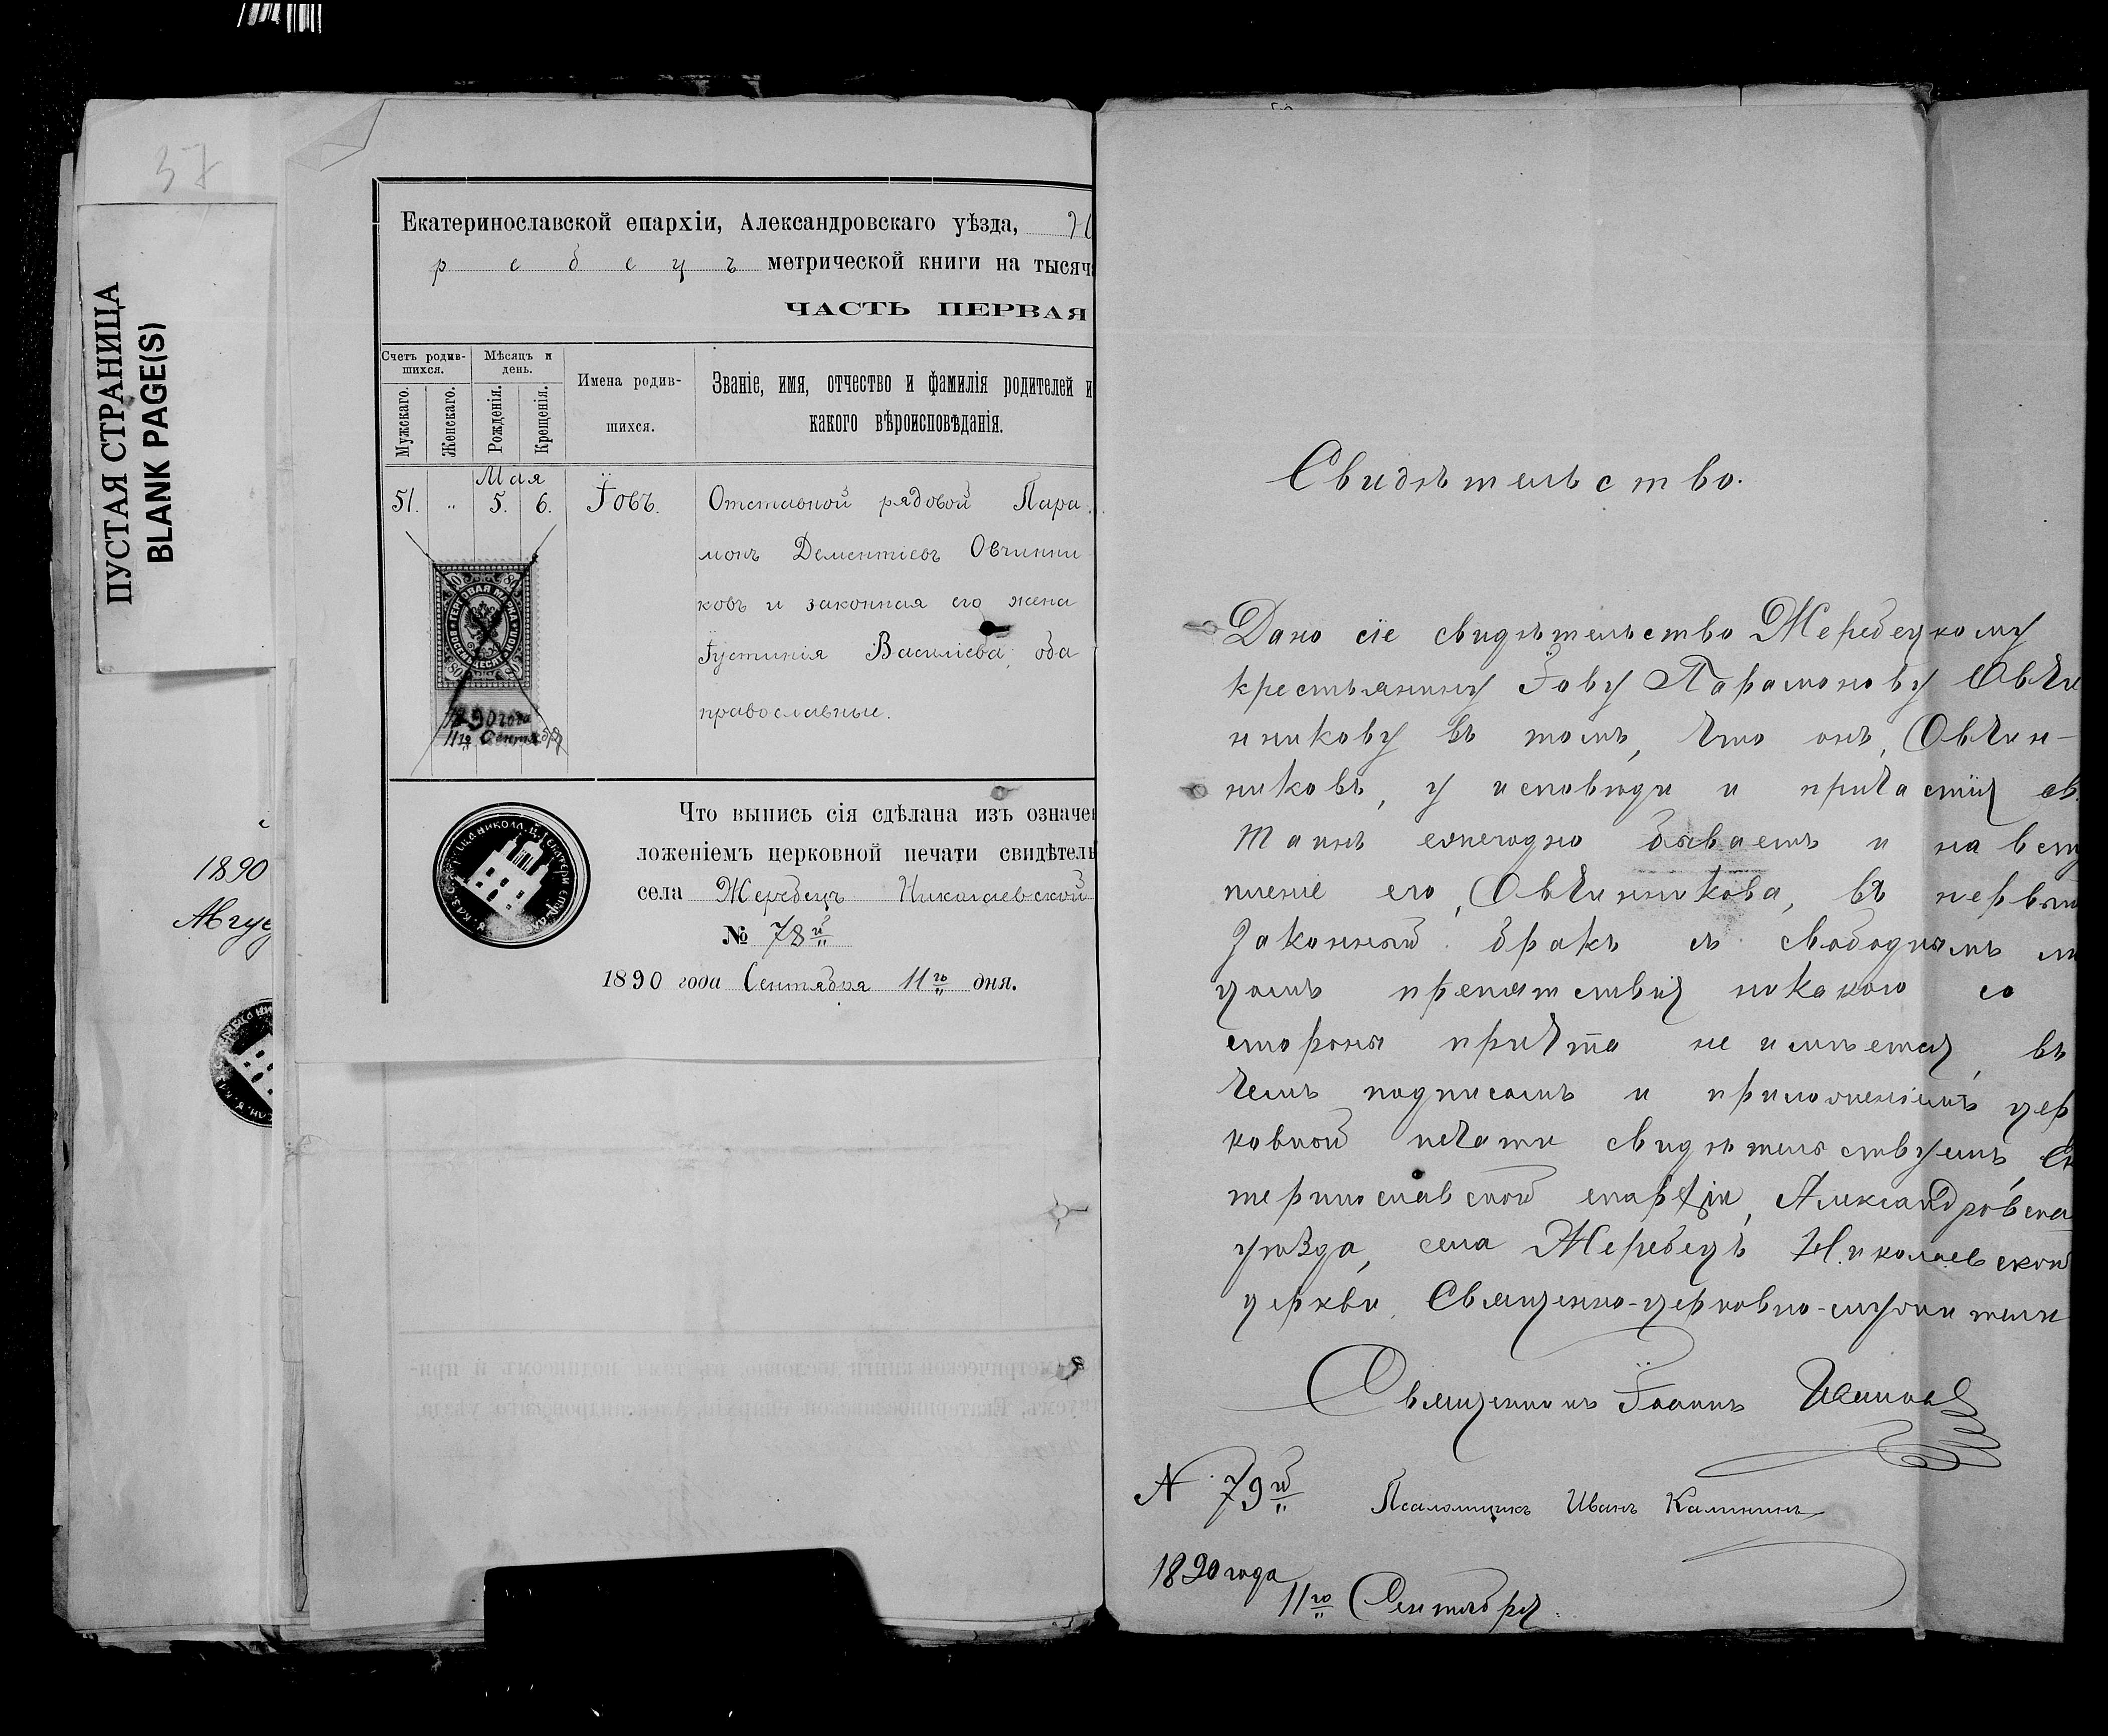 37
ПУСТАЯ СТРАНИЦА
BLANK PAGE(S)
1890
Авгус
Екатеринославской епархіи, Александровскаго уѣзда, Же
ребецъ метрической книги на тысяч
ЧАСТЬ ПЕРВАЯ
Счетъ родив-
шихся.
Мѣсяцъ и
день.
Мужескаго.
Женскаго.
Рожденія.
Крещенія.
Имена родив-
шихся.
Званіе, имя, отчество и фамилія родителей и
какого вѣроисповѣданія.
Мая
51. „ 5. 6. Іовъ. Отставной рядовой Пара
монъ Дементіевъ Овчинни
ковъ и законная его жена
Іустинія Василіева; оба
православные.
80 80
ГЕРБОВАЯ МАРКА ВОСЕМЬДЕСЯТЪ КОП.
80 80
1890 года
11го Сентября
Что выпись сія сдѣлана изъ означен
ложеніемъ церковной печати свидѣтель
села Жеребецъ Николаевской
№ 78й
1890 года Сентября 11го дня.
Свидѣтельство.
Дано сіе свидѣтельство Жеребецкому
крестьянину Іову Парамонову Овчи
нникову въ томъ, что онъ, Овчин-
никовъ, у исповѣди и причастія св.
Таинъ ежегодно бываетъ и на всту
пленіе его, Овчинникова, въ первый
законный бракъ съ свободнымъ ли
цомъ препятствія никакого со
стороны причта не имѣется, въ
чемъ подписомъ и приложеніемъ цер
ковной печати свидѣтельствуемъ, Ека
теринославской епархіи, Александровска
уѣзда, села Жеребецъ Николаевской
церкви. Священно-церковно-служители
Священникъ Іоаннъ
N 79й Псаломщикъ Иванъ Калининъ
1890 года
11го Сентября.